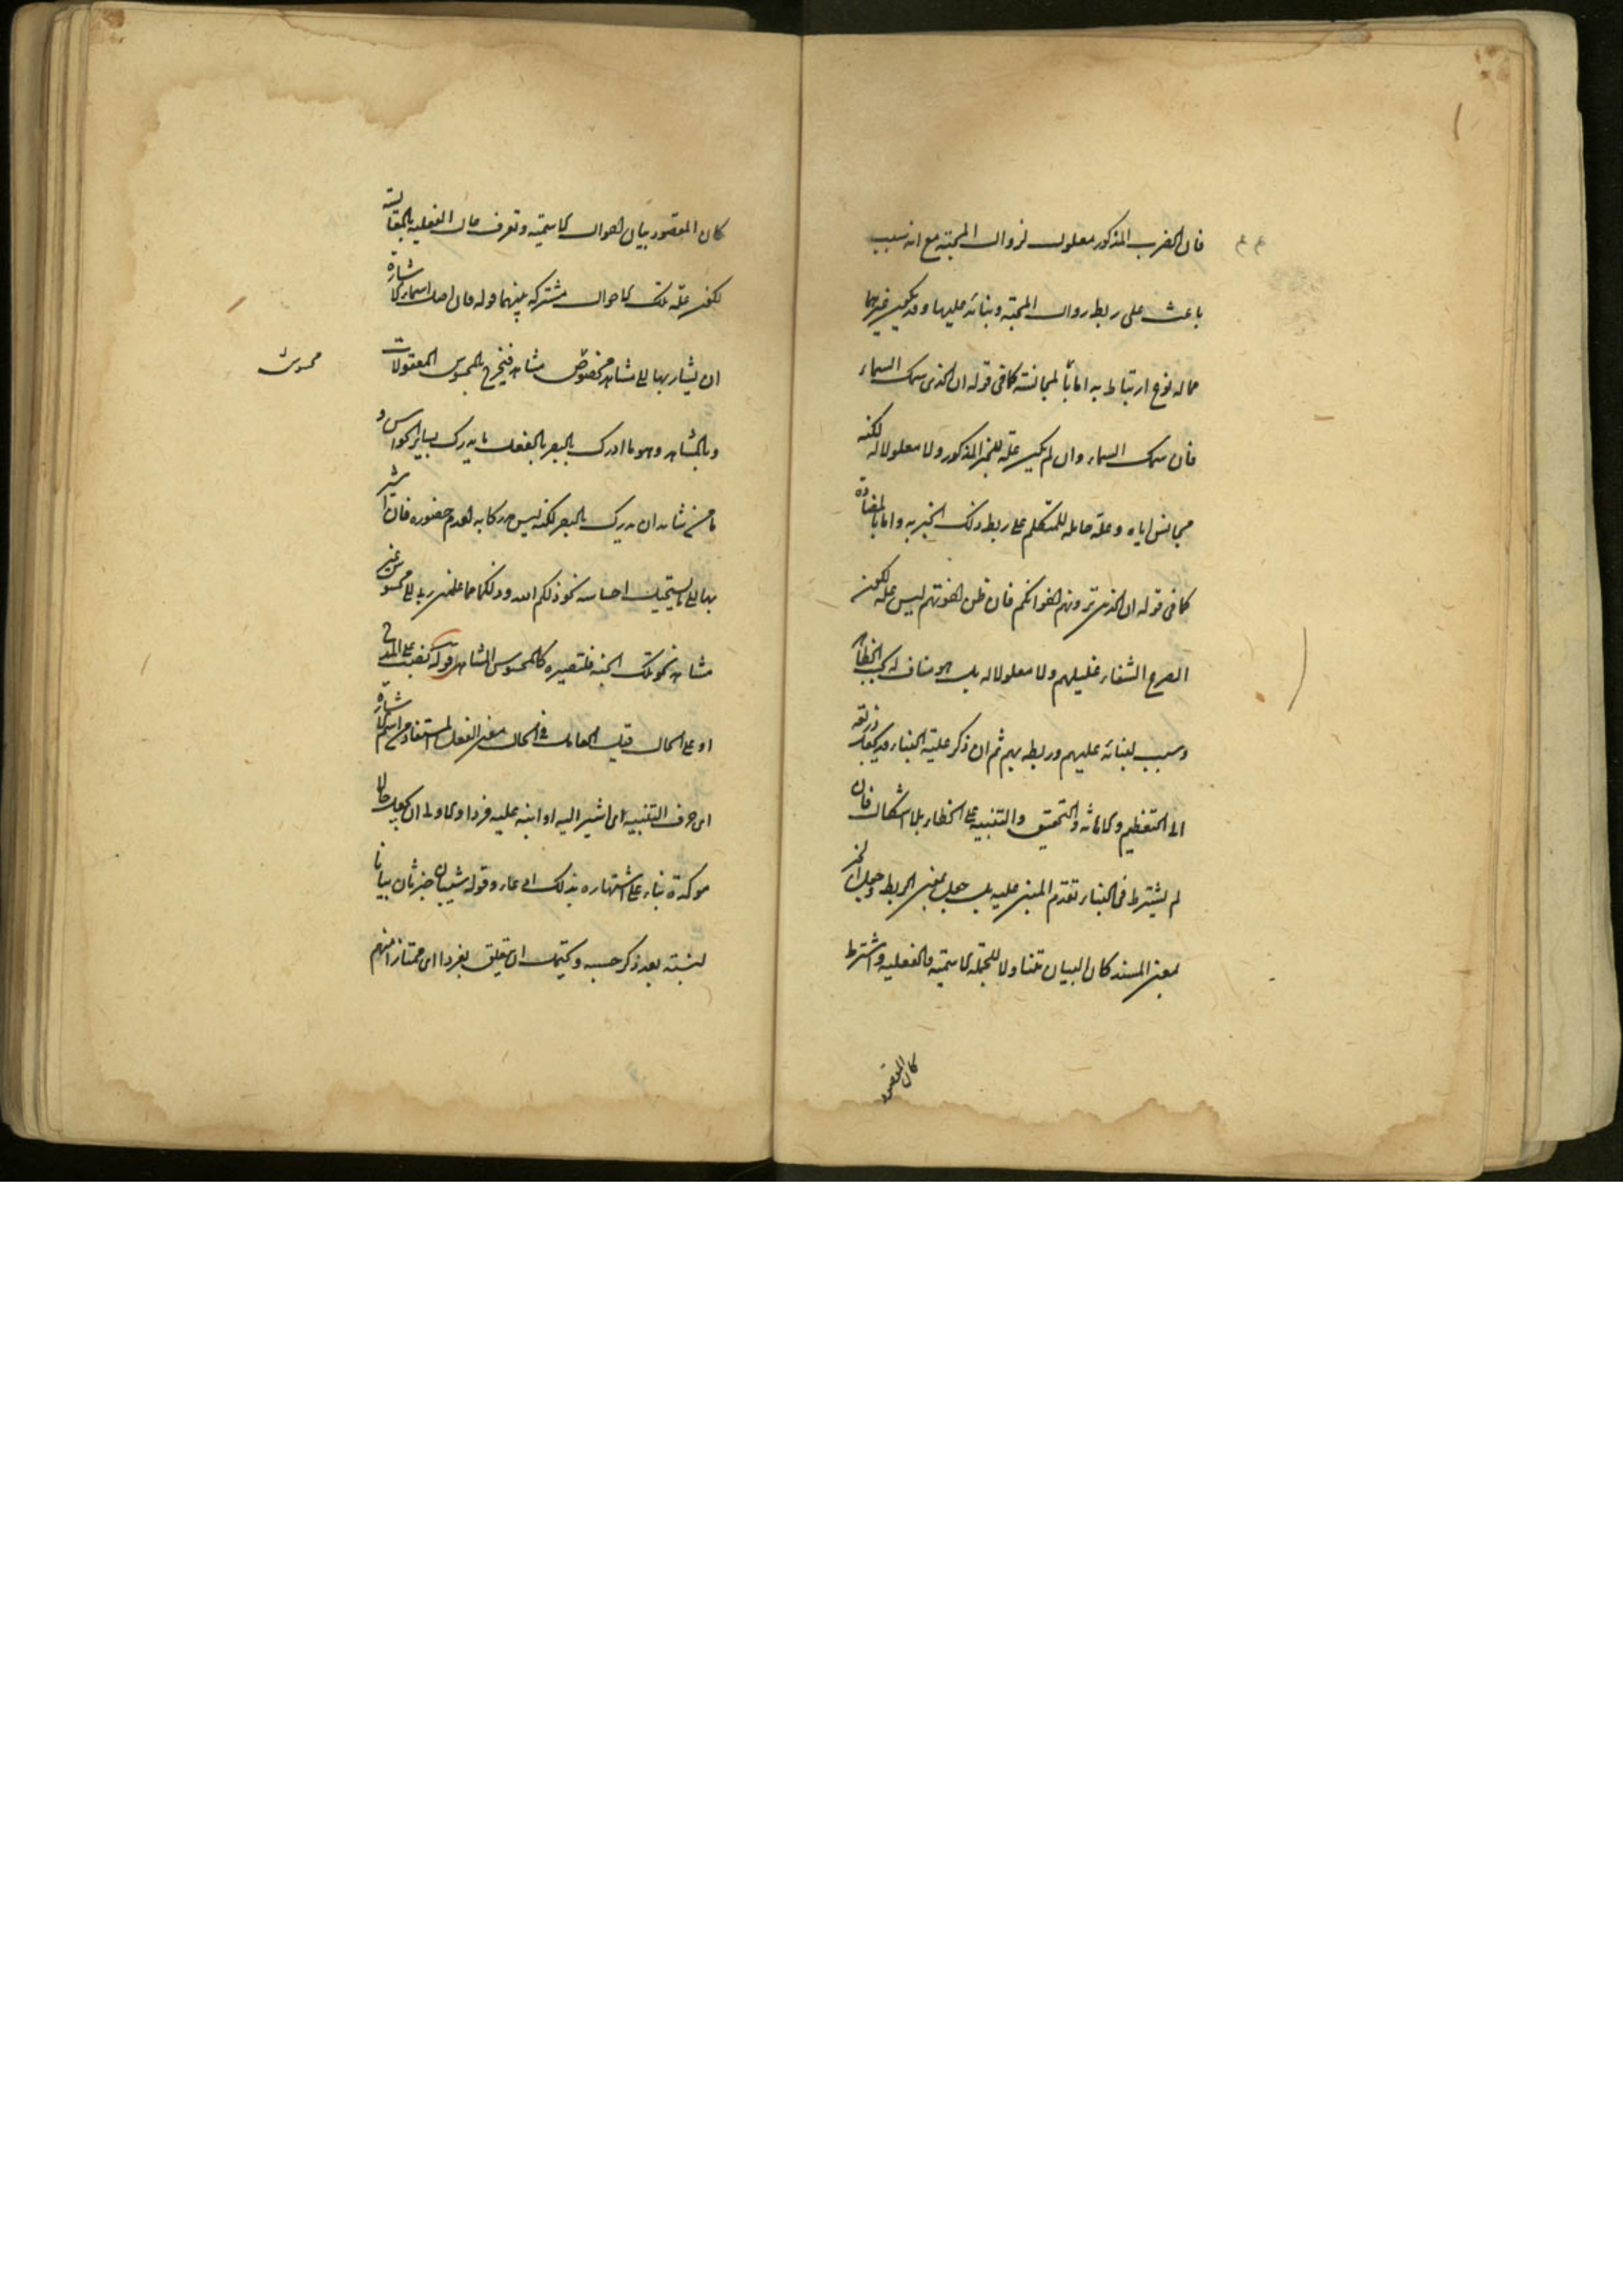 فان الضرب المذكور معلول لزوال المحبة مع انه سبب
باعث على ربط زوال المحبة وبنائه عليها وقد يكون غيرهما
مما له نوع ارتباط به اما بالمجانسة كما فى قوله ان الذى سمك السماء
فان سمك السماء وان لم يكن علة للخبر المذكور ولا معلولا له لكنه
مجانس اياه وعلة حاملة للمتكلم على ربط ذلك الخبر به واما بالمضادة
كما فى قوله ان الذين ترونهم اخوانكم فان ظن اخوتهم ليس علة لكون
الصرع الشفاء غليلهم ولا معلولا له بل هو مناف له بحسب الخطأ
وسبب لبنائه عليهم وربطه بهم ثم ان ذكر علية البناء قد يجعل ذريعة
الى التعظيم والاهانة والتحقيق والتنبيه على الخطاء بلا اشكال فان
لم يشترط فى البناء تقدم المبنى عليه بل جعل بمعنى الربط وجعل الخبر
بمعنى المسند كان البيان متناولا للجملة الاسمية والفعلية وان اشترط
كان المقصود
كان المقصود بيان احوال الاسمية وتعرف حال الفعلية بالمقايسة
لكن علة تلك الاحوال مشتركة بينهما قوله فان اصل اسماء الاشارة
ان يشار بها الى مشاهد مخصوص مشاهد فيخرج بالمحسوس المعقولات
محسوس
وبالمشاهد وهو ما ادرك بالبصر بالفعل ما يدرك بسائر الحواس و
ما من شانه ان يدرك بالبصر لكنه ليس مدركا به لعدم حضوره فان اشير
بها الى ما يستحيل احساسه نحو ذلكم الله وذلكما مما علمنى ربى او الى محسوس غير
مشاهد نحو تلك الجنة فلتصييره كالمحسوس المشاهد قوله نصب على المدح
او على الحال قيل العامل فى الحال معنى الفعل المستفاد من اسم الاشارة
اى حرف التنبيه اى اشير اليه او انبه عليه فردا والاولى ان يجعل حالا
موكدة بناء على اشتهاره بذلك ادعاء وقوله شيبان خبر ثان بيانا
لنسبته بعد ذكر حسبه ويحتمل ان يتعلق بفردا اى ممتازا منهم